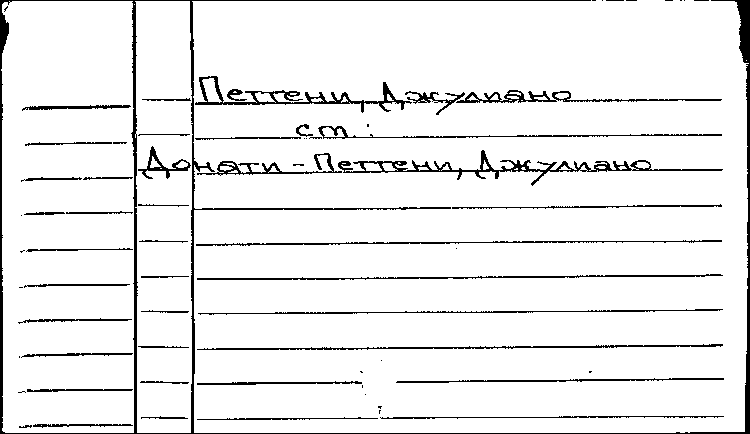 Петтени, Джулиано
ст.:
Донати - Петтени, Джулиано